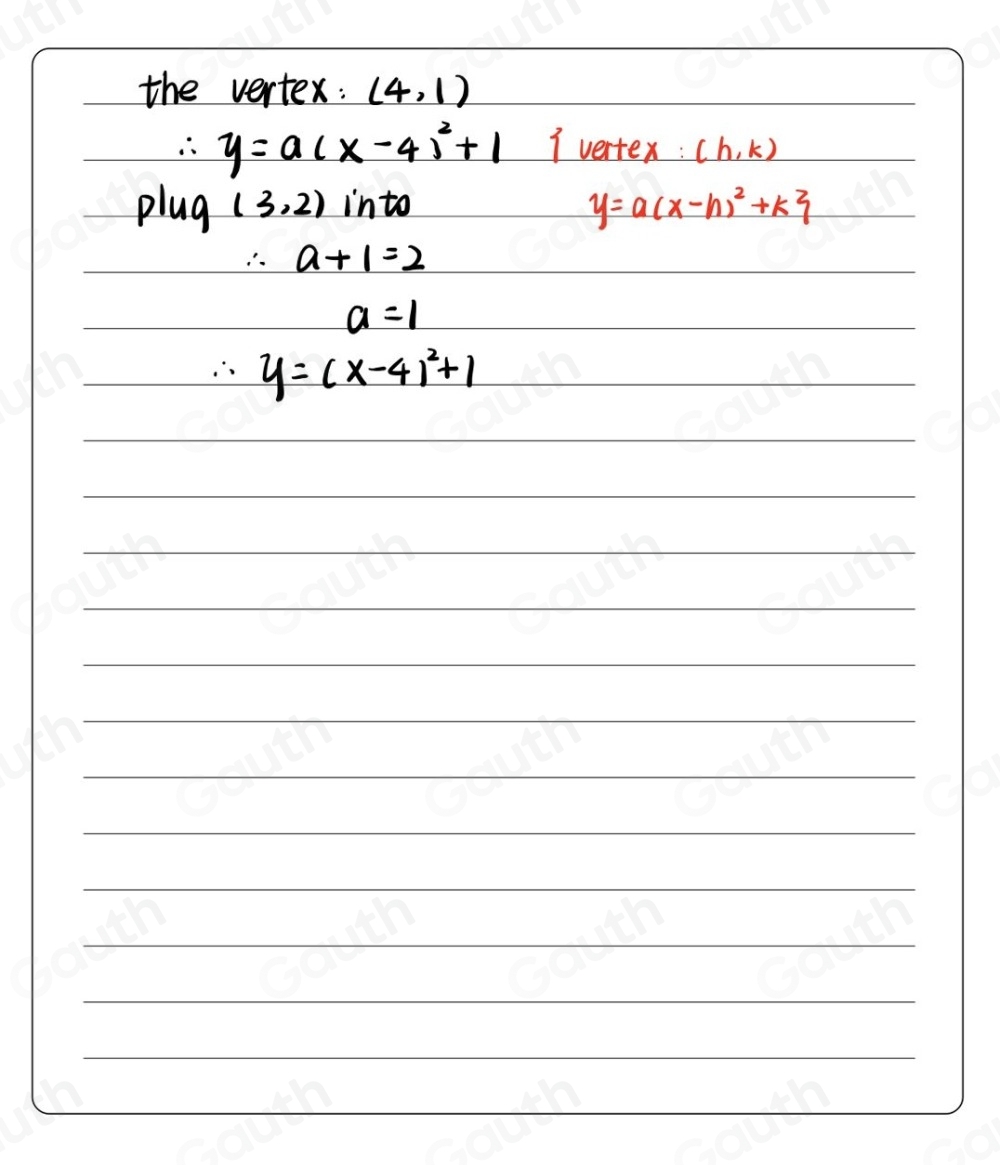 the vertex: (4,1)
∴ y=a(x-4)²+1 {vertex:(h,k)
plug (3,2) into y=a(x-h)²+k}
∴ a+1=2
a=1
∴ y=(x-4)²+1
Gauth